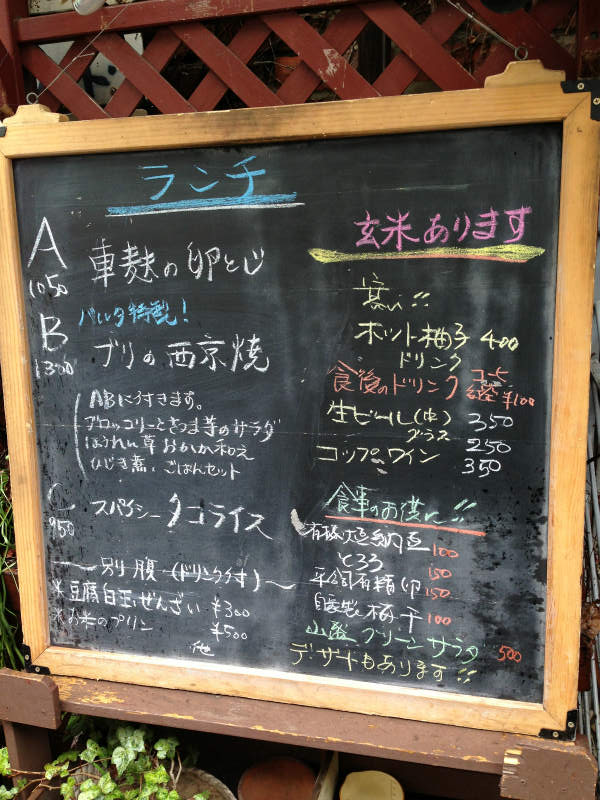 ランチ
A
1050
車麸の卵とじ
B
1300
特製!
ブリの西京焼
ABに付きます。
ブロッコリーとさつま芋のサラダ
ほうれん草おかか和え
ひじき煮、ごはんセット
C
950
スパイシータコライス
別腹(ドリンク付)
*豆腐白玉ぜんざい ¥300
*お米のプリン ¥500
他
玄米あります
ホット柚子 400
ドリンク
食後のドリンク ¥100
生ビール(中) 350
グラス 250
コップワイン 350
食事のお供に!!
納豆 100
とろろ 150
有精卵 150
自家製梅干 100
グリーンサラダ 500
デザートもあります!!